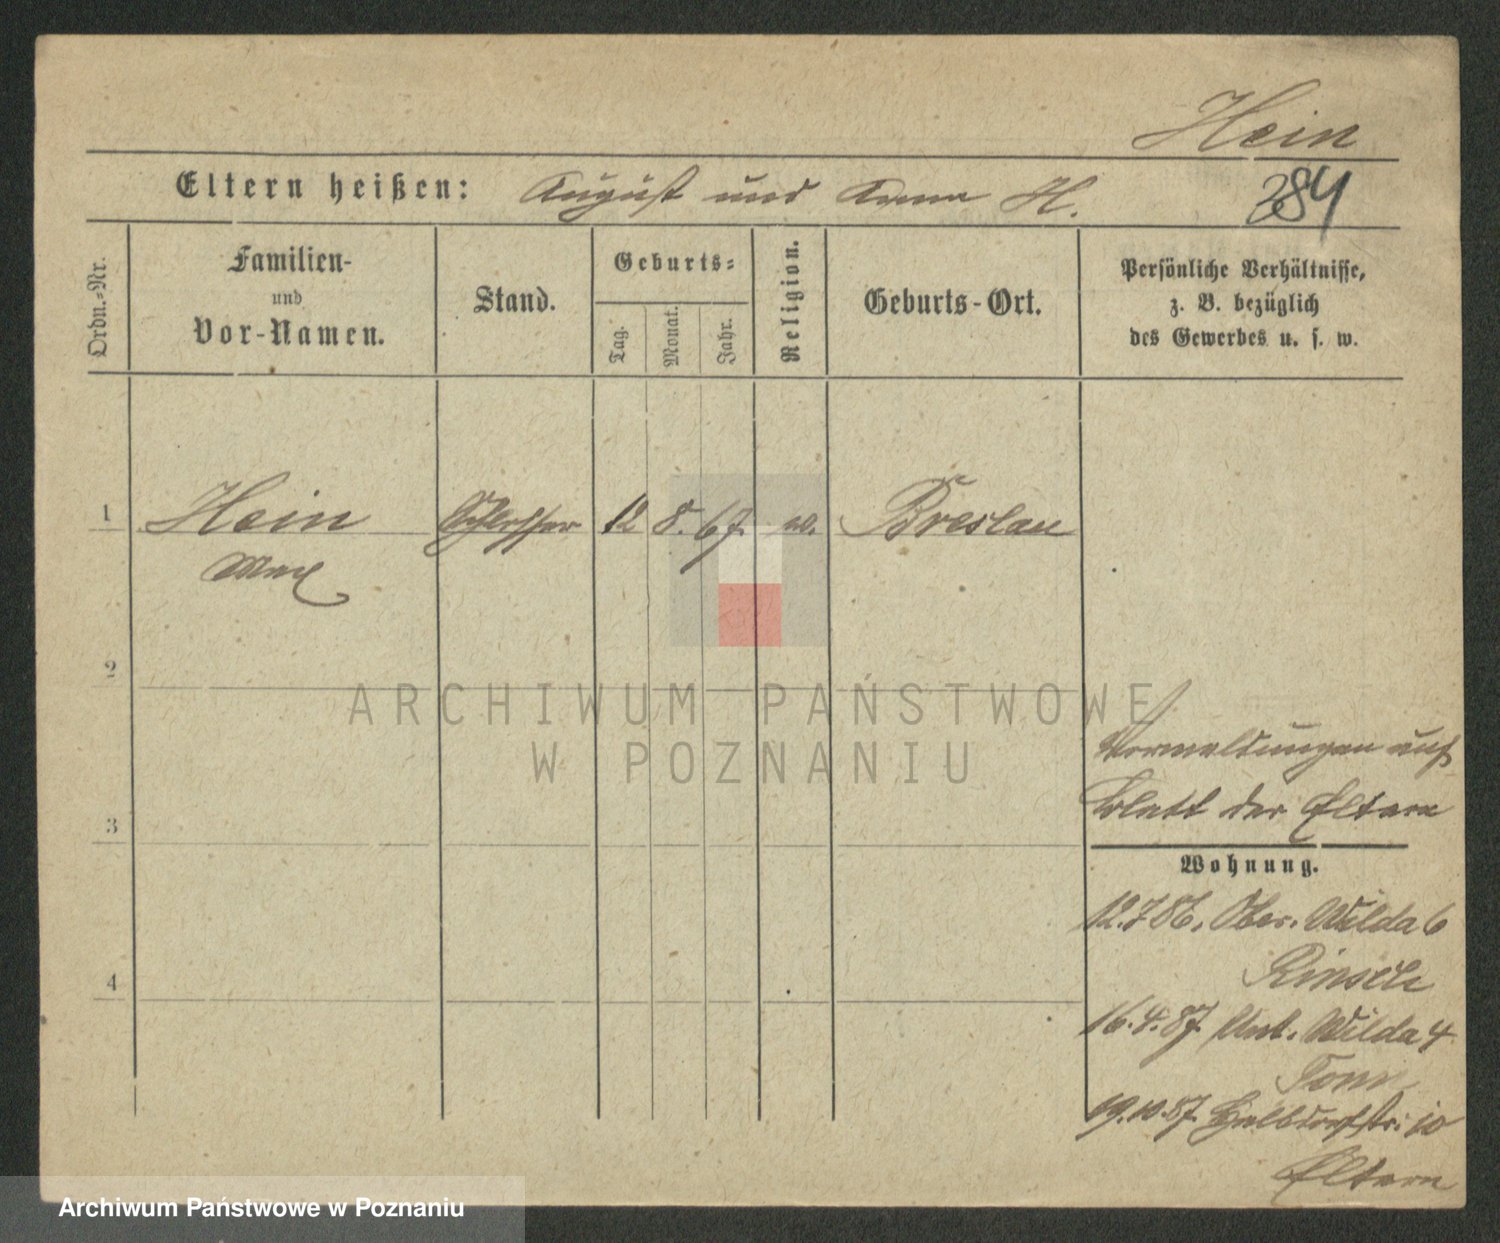 Hein
Eltern heißen: August und Anna H.
284
Ordn.-Nr.
Familien-
und
Vor-Namen.
Stand.
Geburts-
Tag.
Monat.
Jahr.
Religion.
Geburts-Ort.
Persönliche Verhältnisse,
z. B. bezüglich
des Gewerbes u. s. w.
1 Hein Schlosser 12 8. 67. Breslau
Max
2
ARCHIWUM PAŃSTWOWE
W POZNANIU
Vermeldungen auf
3 Blatt der Eltern
Wohnung.
12.7 86. Ober. Wilda 6
4
16.4.87. Unt. Wilda 4
19.10.87. Halbdorfstr. 10
Eltern
Archiwum Państwowe w Poznaniu